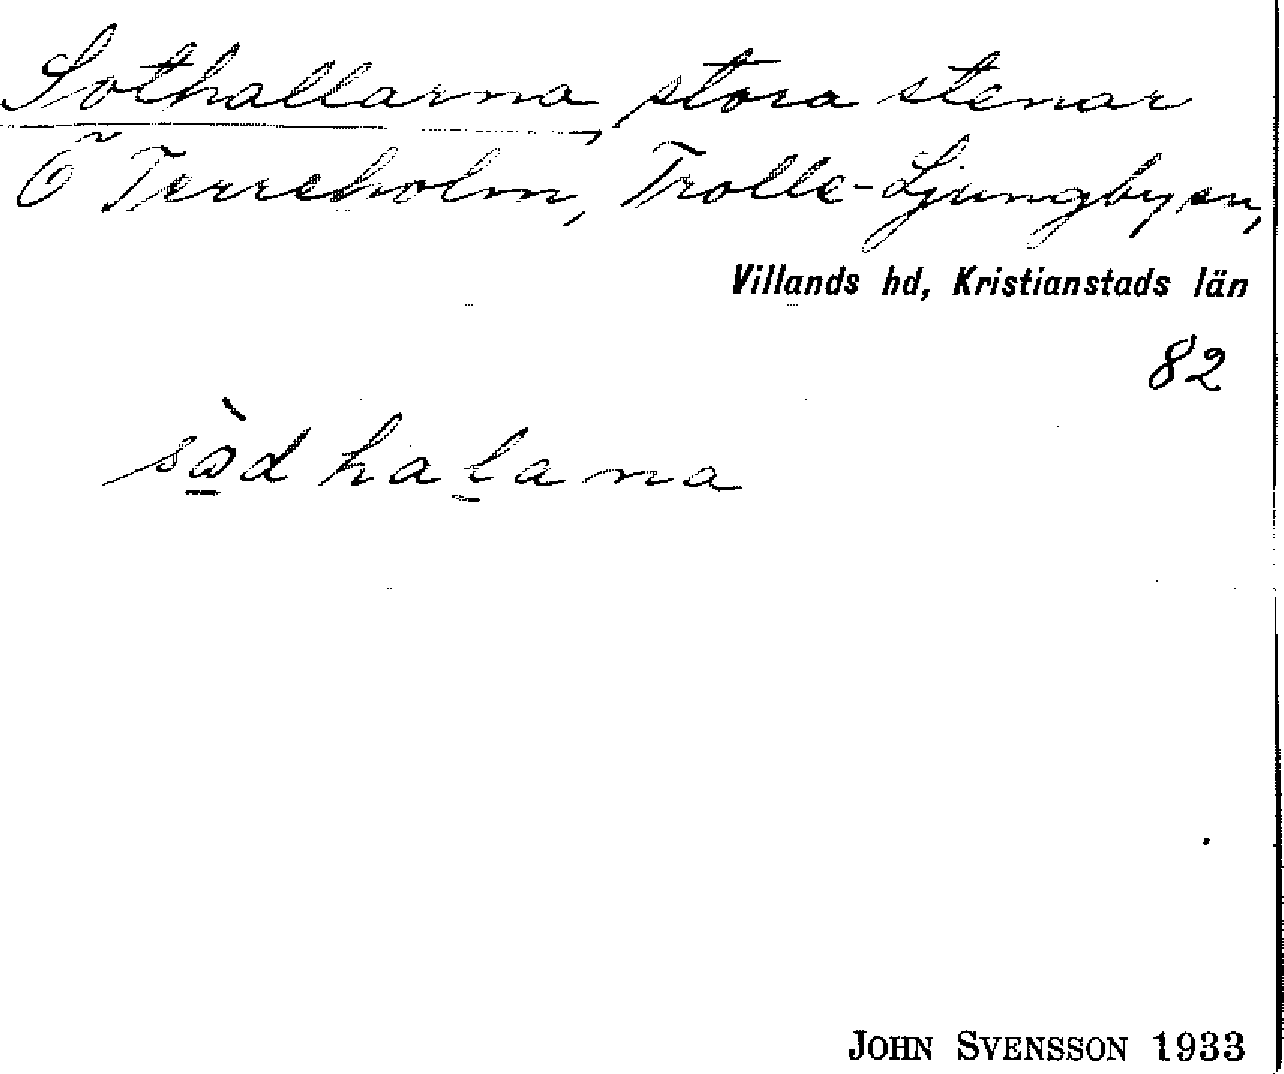 Sothallarna, stora stenar
Ö Terreholm, Trolle-Ljungby sn,
Villands hd, Kristianstads län
82
sò̱dhaḻana
JOHN SVENSSON 1933